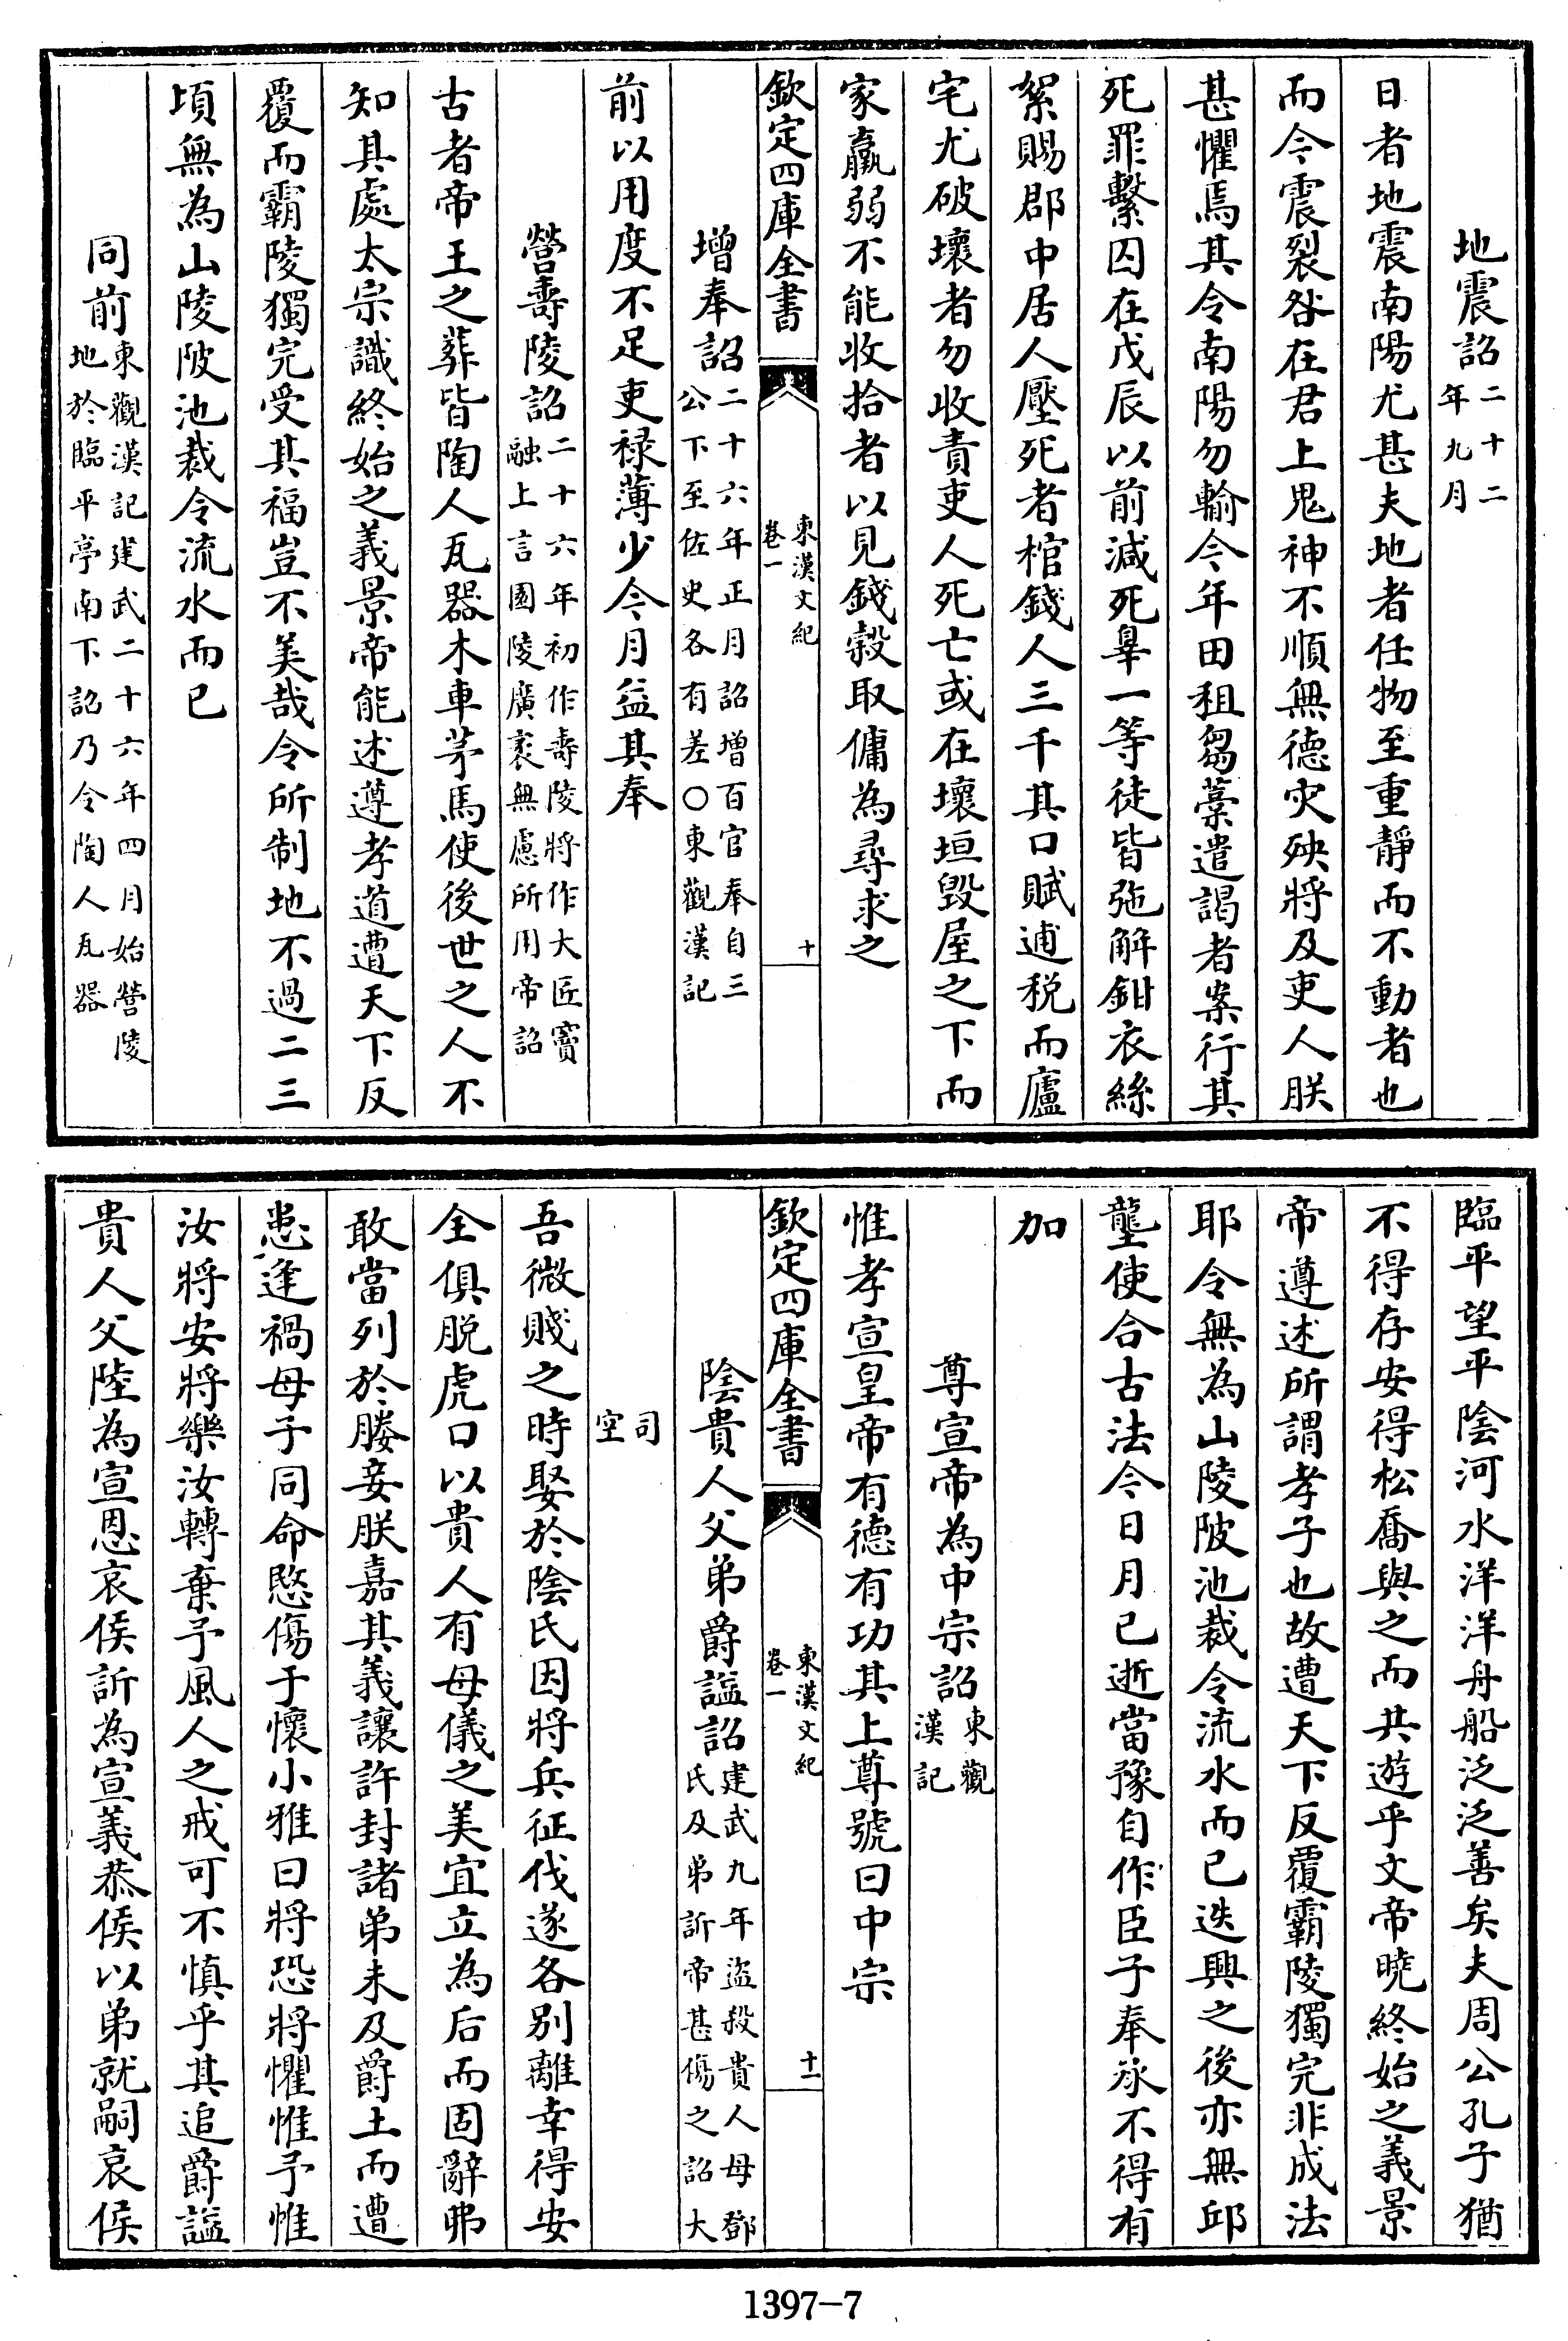 地震詔二十二年九月
日者地震南陽尤甚夫地者任物至重靜而不動者也
而今震裂咎在君上鬼神不順無德灾殃將及吏人朕
甚懼焉其令南陽勿輸今年田租芻藁遣謁者案行其
死罪繫囚在戊辰以前減死辠一等徒皆弛解鉗衣絲
絮賜郡中居人壓死者棺錢人三千其口賦逋税而廬
宅尤破壞者勿收責吏人死亡或在壞垣毁屋之下而
家羸弱不能收拾者以見錢穀取傭為尋求之
欽定四庫全書 東漢文紀 卷一 十
增奉詔二十六年正月詔增百官奉自三公下至佐史各有差〇東觀漢記
前以用度不足吏祿薄少今月益其奉
營壽陵詔二十六年初作壽陵將作大匠竇融上言園陵廣袤無慮所用帝詔
古者帝王之葬皆陶人瓦器木車茅馬使後世之人不
知其處太宗識終始之義景帝能述遵孝道遭天下反
覆而霸陵獨完受其福豈不美哉令所制地不過二三
頃無為山陵陂池裁令流水而已
同前東觀漢記建武二十六年四月始營陵地於臨平亭南下詔乃令陶人瓦器
臨平望平陰河水洋洋舟船泛泛善矣夫周公孔子猶
不得存安得松喬與之而共遊乎文帝曉終始之義景
帝遵述所謂孝子也故遭天下反覆霸陵獨完非成法
耶令無為山陵陂池裁令流水而已迭興之後亦無邱
壟使合古法今日月已逝當豫自作臣子奉承不得有
加
尊宣帝為中宗詔東觀漢記
惟孝宣皇帝有德有功其上尊號曰中宗
欽定四庫全書 東漢文紀 卷一 十一
陰貴人父弟爵諡詔建武九年盜殺貴人母鄧氏及弟訢帝甚傷之詔大
司空
吾微賤之時娶於陰氏因將兵征伐遂各别離幸得安
全俱脱虎口以貴人有母儀之美宜立為后而固辭弗
敢當列於媵妾朕嘉其義讓許封諸弟未及爵土而遭
患逢禍母子同命愍傷于懷小雅曰將恐將懼惟予惟
汝將安將樂汝轉棄予風人之戒可不慎乎其追爵諡
貴人父陸為宣恩哀侯訢為宣義恭侯以弟就嗣哀侯
1397-7